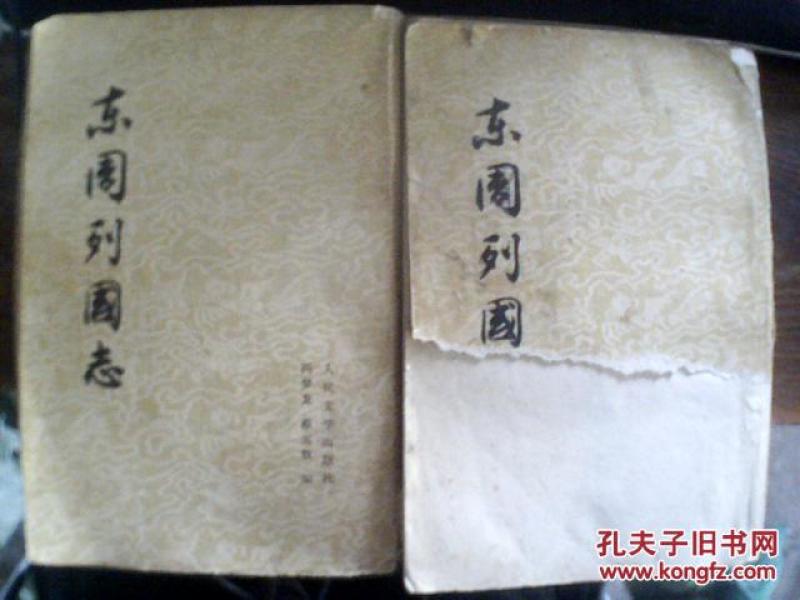 东周列國志
人民文学出版社
冯梦龙 蔡元放 编
东周列國
孔夫子旧书网
www.kongfz.com